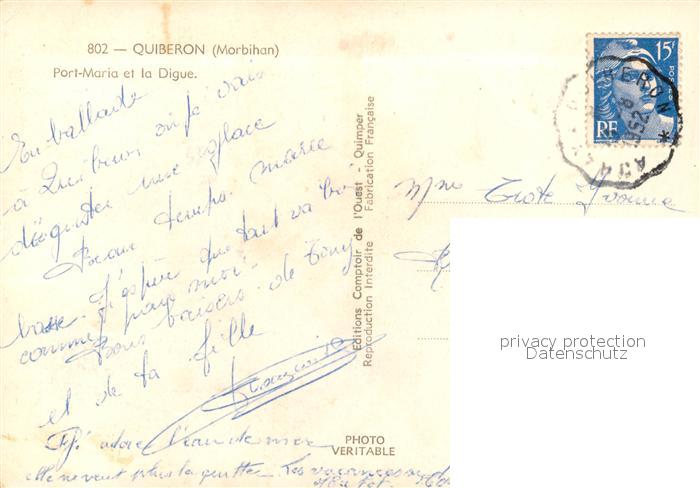 802 — QUIBERON (Morbihan)
Port-Maria et la Digue.
En ballade
à Quiberon où je vais
déguster une glace
Beau temps. marée
basse. J'espère que tout va bien
comme pour moi.
Bons baisers de Tony
et de ta fille
Françoise
adore l'eau de mer
elle ne veut plus la quitter. Les vacances
Editions Comptoir de l'Ouest - Quimper
Reproduction Interdite Fabrication Française
PHOTO
VERITABLE
15F
POSTES
RF
QUIBERON
Mme Yvonne
privacy protection
Datenschutz